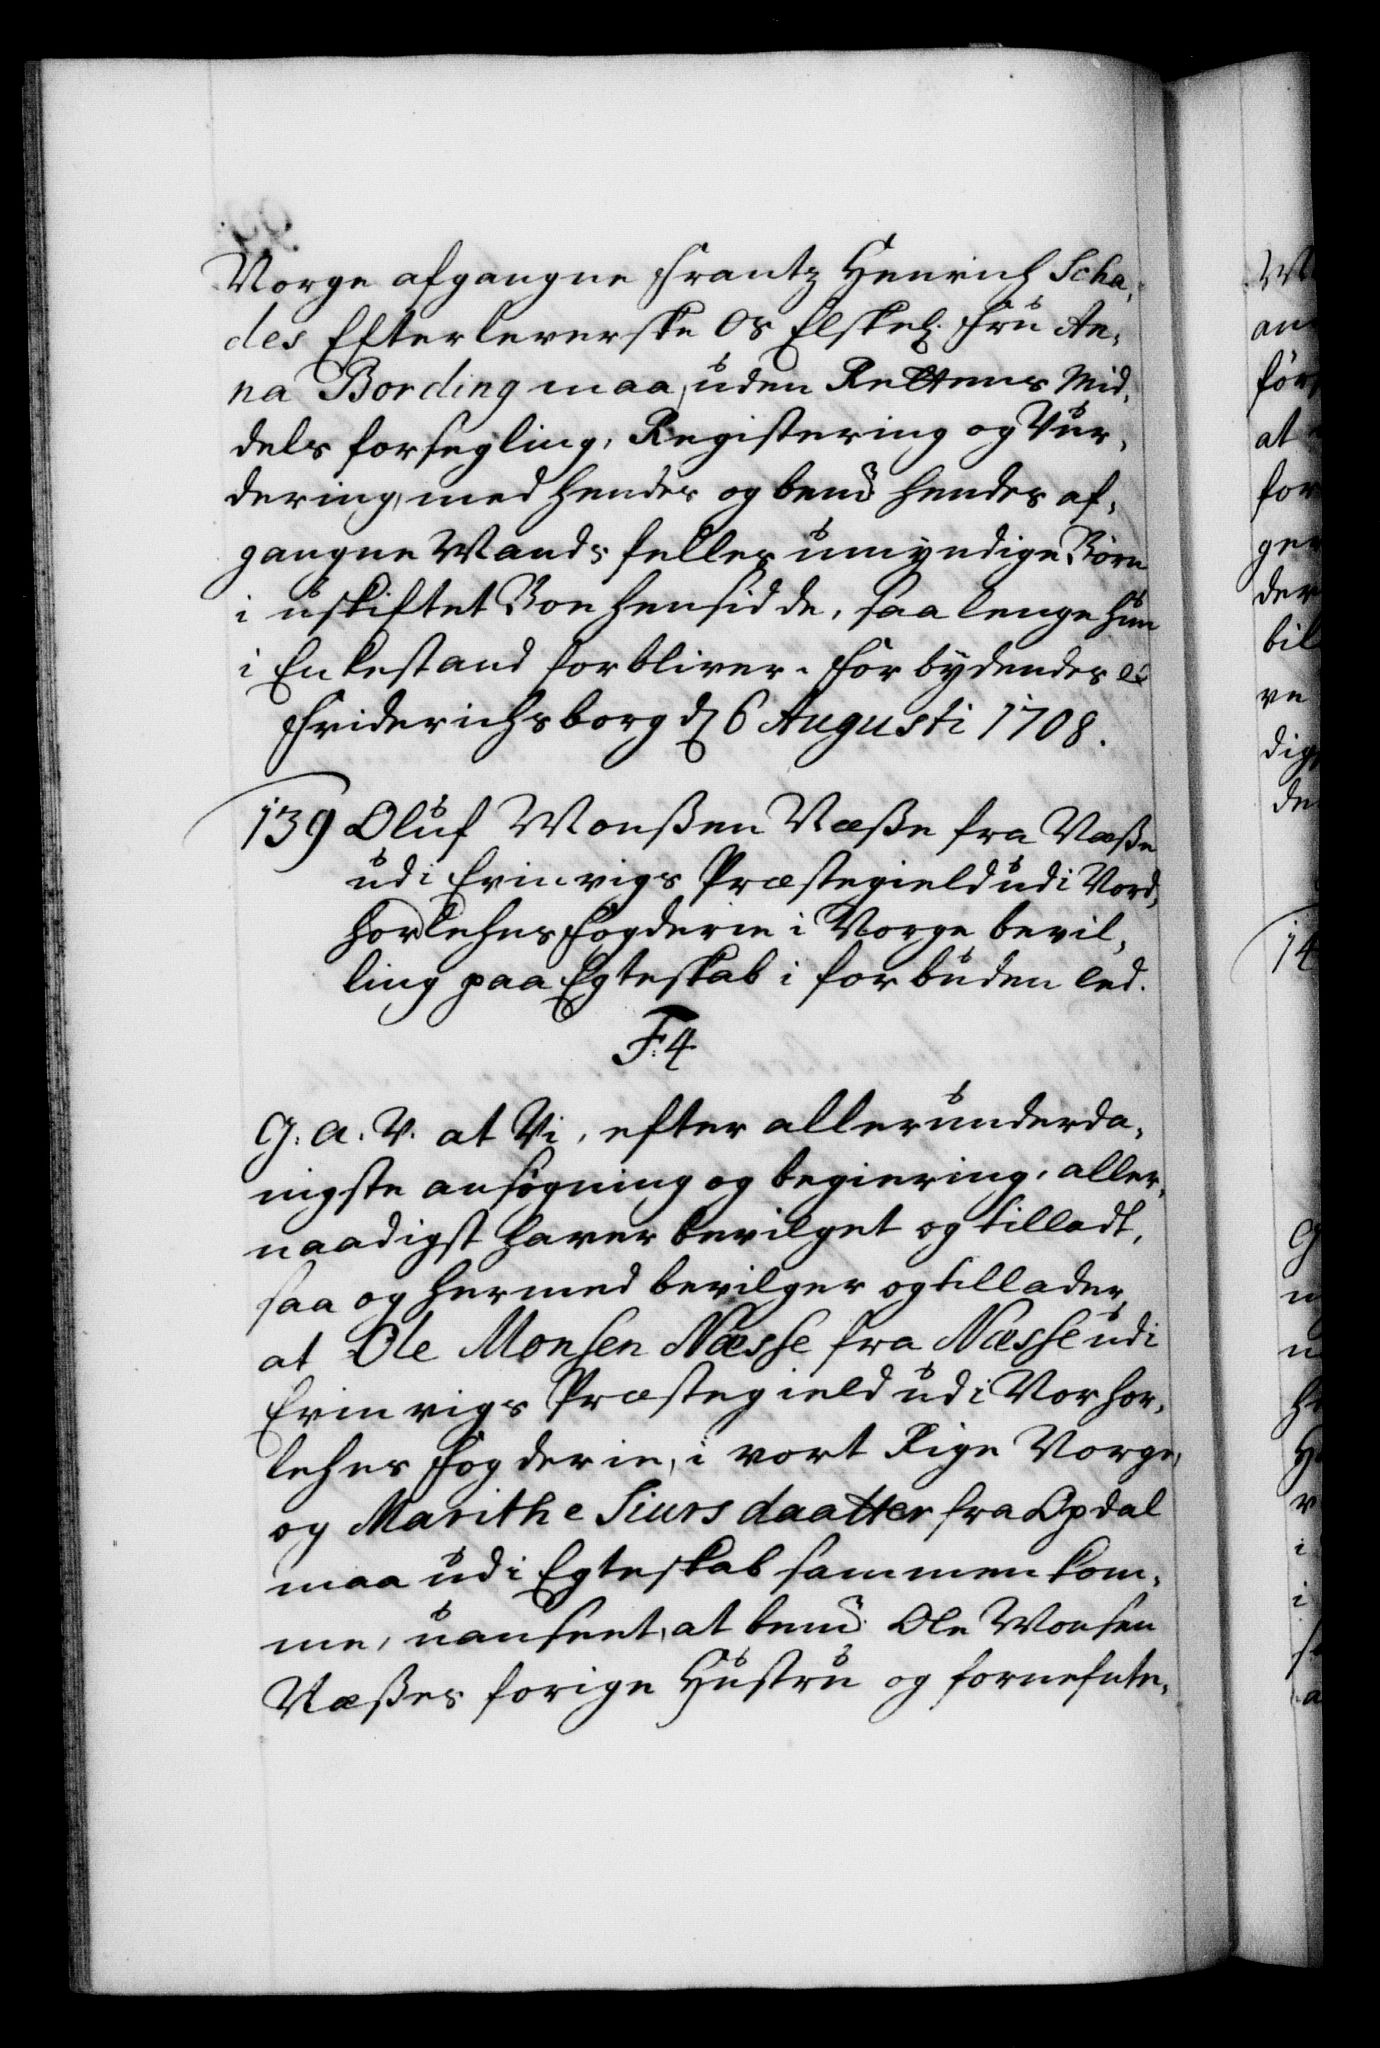 Norge afgangne Frantz Henrich Scha,
des Efterleverske Os Elskel. Fru An,
na Bording maa, uden Rettens Mid,
dels forsegling, Registering og Vur,
dering, med hendes og bemd. hendes af,
gangne Mands felles umyndige Børn
i uskiftet Boe hensidde, saa lenge hun
i Enkestand forbliver. Forbydendes
Friderichsborg d 6 Augusti 1708.
139 Oluf Monßen Næße fra Næße
udi Evinvigs Præstegield udi Nord,
horlehns Fogderie i Norge bevil,
ling paa Egteskab i forbuden led.
F: 4
G. A. V. at Vi, efter allerunderda,
nigste ansøgning og begiering, aller,
naadigst haver bevilget og tilladt,
saa og hermed bevilger og tillader,
at Ole Monsen Næsse fra Næsse udi
Evinvigs Præstegield udi Norhor,
lehns Fogderie, i vort Rige Norge,
og Marithe Siursdaatter fra Opdal
maa udi Egteskab sammen kom,
me, uanseet, at bemd. Ole Monsen
Næßes forige Hustru og fornefnte,